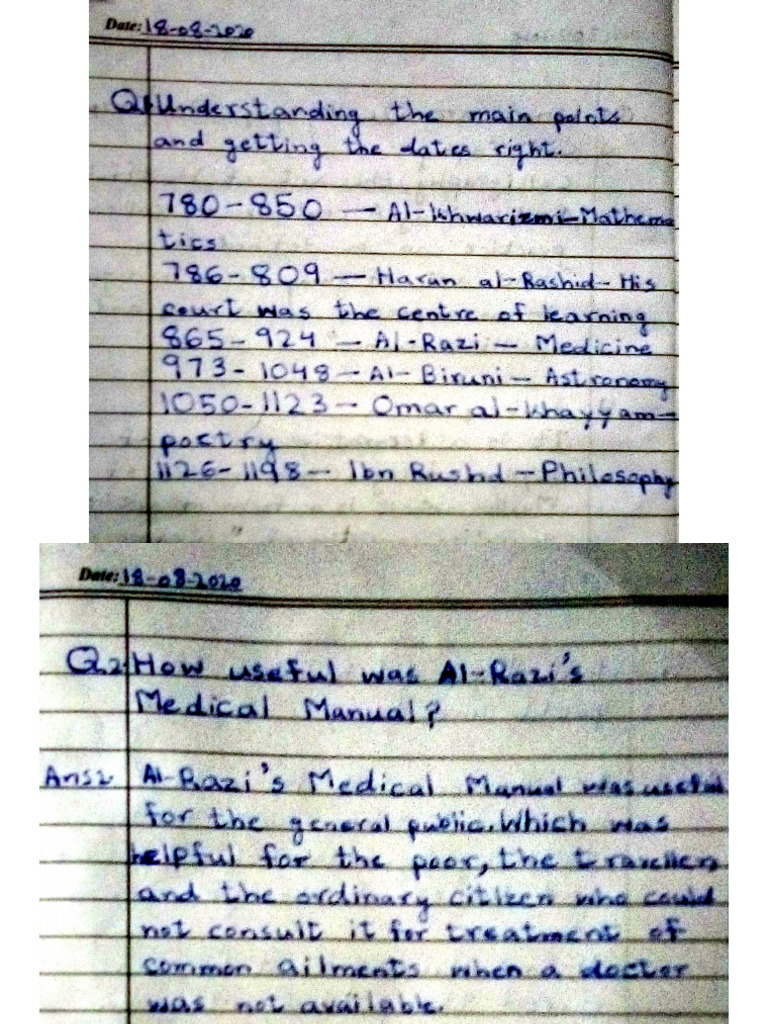 Date: 18-08-2020
Q1. Understanding the main points
and getting the dates right.
780-850 — Al-Khwarizmi-Mathema
tics
786-809 — Harun al-Rashid- His
court was the centre of learning
865-924 — Al-Razi — Medicine
973-1048 — Al- Biruni — Astronomy
1050-1123 — Omar al-khayyam-
poetry
1126-1198 — Ibn Rushd — Philosophy
Date: 18-08-2020
Q.2. How useful was Al-Razi's
Medical Manual?
Ans2 Al-Razi's Medical Manual was useful
for the general public. Which was
helpful for the poor, the traveller,
and the ordinary citizen who could
not consult it for treatment of
common ailments when a doctor
was not available.